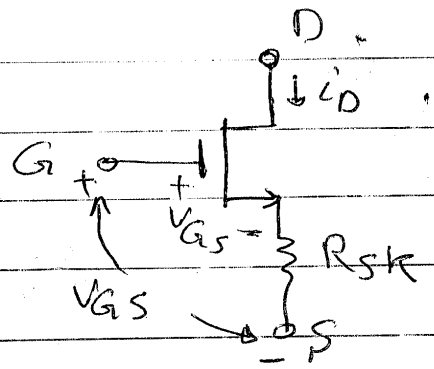 D
i_D
G
+
+
V_GS -
R_SK
V_GS
- S